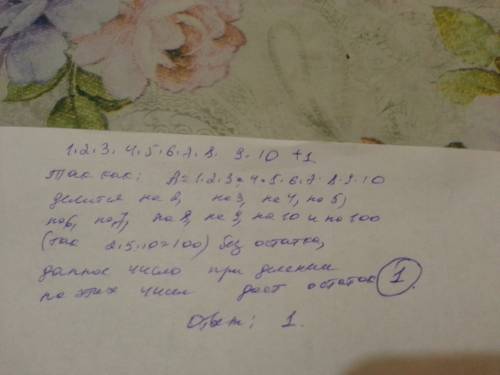 1·2·3·4·5·6·7·8·9·10 +1
Так как: A=1·2·3·4·5·6·7·8·9·10
делится на 2, на 3, на 4, на 5,
на 6, на 7, на 8, на 9, на 10 и на 100
(так 2·5·10=100) без остатка,
данное число при делении
на этих чисел даст остаток 1.
Ответ: 1.